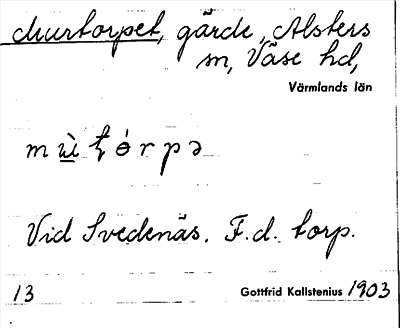 Murtorpet, gärde, Alsters
sn, Väse hd,
Värmlands län
m ù̲ ƫ ó r p ə
Vid Svedenäs. F.d. torp.
13 Gottfrid Kallstenius 1903